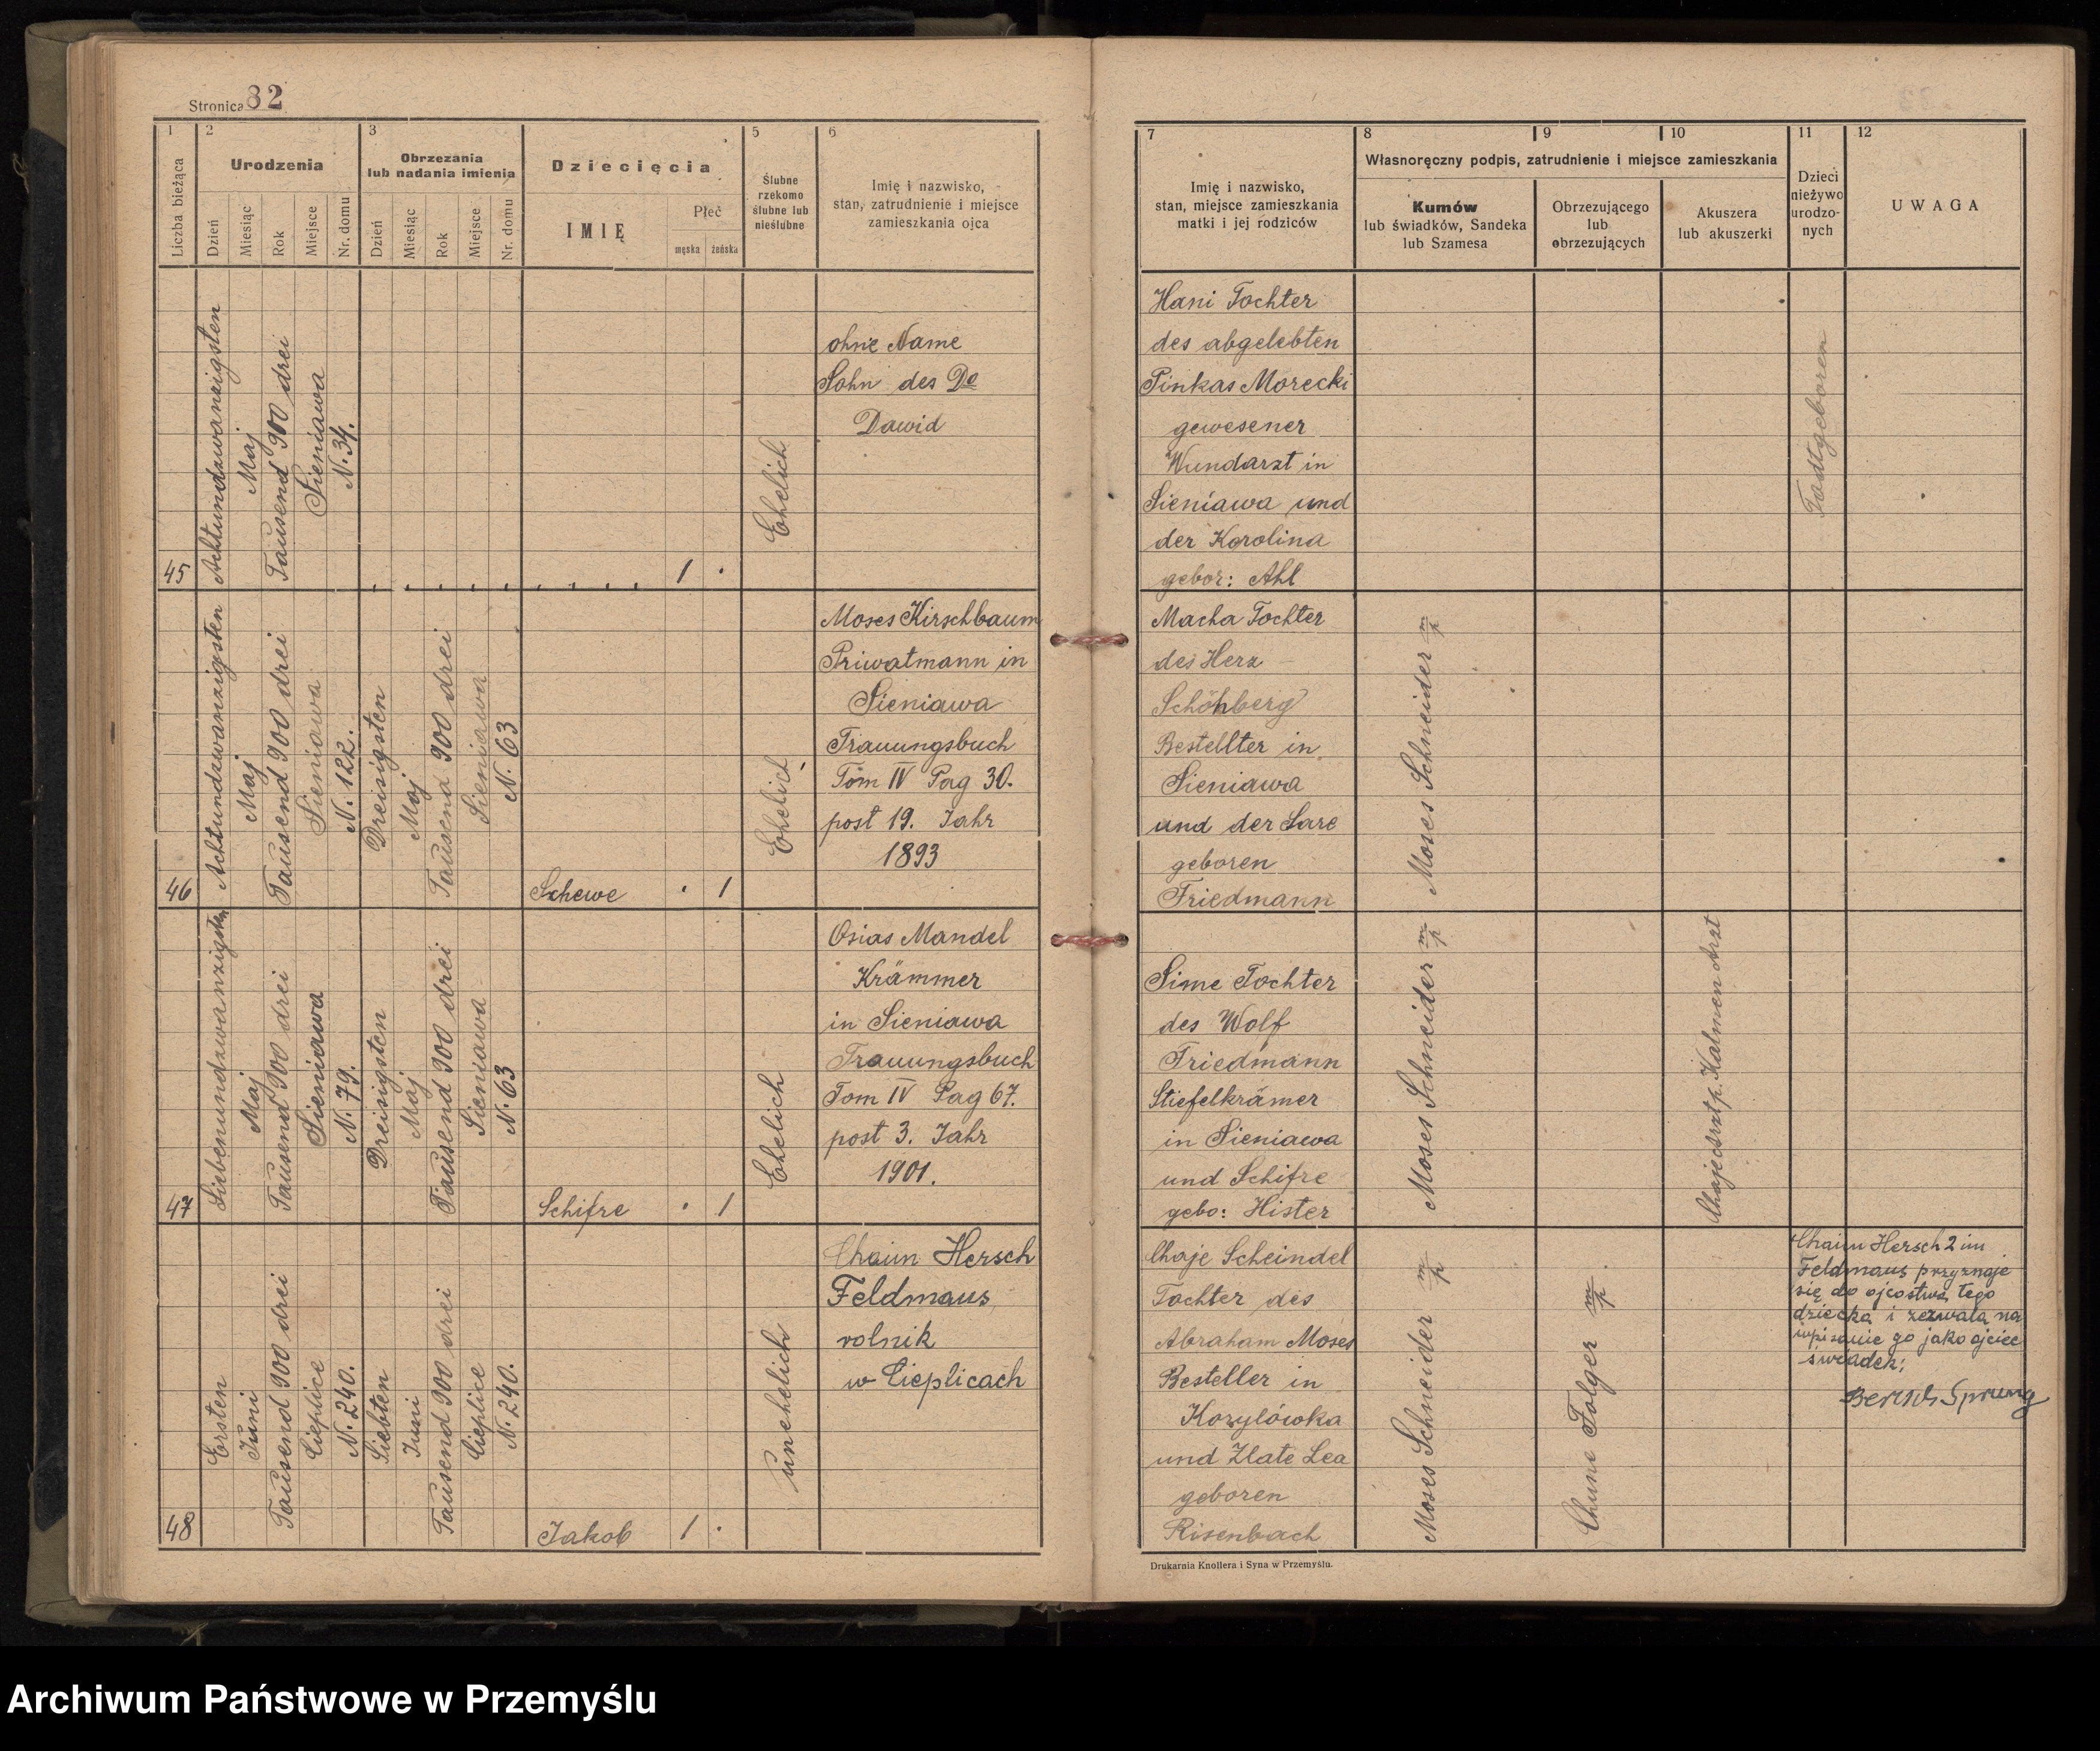 Stronica 82
1
2
3
5
6
Liczba bieżąca
Urodzenia
Obrzezania
lub nadania imienia
Dziecięcia
Ślubne
rzekomo
ślubne lub
nieślubne
Imię i nazwisko,
stan, zatrudnienie i miejsce
zamieszkania ojca
Dzień
Miesiąc
Rok
Miejsce
Nr. domu
Dzień
Miesiąc
Rok
Miejsce
Nr. domu
IMIĘ
Płeć
męska
żeńska
7
8
9
10
11
12
Imię i nazwisko,
stan, miejsce zamieszkania
matki i jej rodziców
Własnoręczny podpis, zatrudnienie i miejsce zamieszkania
Kumów
lub świadków, Sandeka
lub Szamesa
Obrzezującego
lub
obrzezujących
Akuszera
lub akuszerki
Dzieci
nieżywo
urodzo-
nych
UWAGA
45
Achtundzwanzigsten
Maj
Tausend 900 drei
Sieniawa
N. 34.
1
Ehelich
ohne Name
Sohn des Do
Dawid
Hani Tochter
des abgelebten
Pinkas Morecki
gewesener
Wundarzt in
Sieniawa und
der Karolina
gebor: Ahl
Todtgeboren
46
Achtundzwanzigsten
Maj
Tausend 900 drei
Sieniawa
N. 122.
Dreisigsten
Maj
Tausend 900 drei
Sieniawa
N. 63
Schewe
1
Ehelich
Moses Kirschbaum
Priwatmann in
Sieniawa
Trauungsbuch
Tom IV Pag 30.
post 19. Jahr
1893
Macha Tochter
des Herz
Schönberg
Bestellter in
Sieniawa
und der Sare
geboren
Friedmann
Moses Schneider m/p
47
Siebenundzwanzigsten
Maj
Tausend 900 drei
Sieniawa
N. 79.
Dreisigsten
Maj
Tausend 900 drei
Sieniawa
N. 63
Schifre
1
Ehelich
Osias Mandel
Krämmer
in Sieniawa
Trauungsbuch
Tom IV Pag 67.
post 3. Jahr
1901.
Sime Tochter
des Wolf
Friedmann
Stiefelkrämer
in Sieniawa
und Schifre
gebo: Hister
Moses Schneider m/p
Kalmen Arzt
48
Ersten
Juni
Tausend 900 drei
Cieplice
N. 240.
Siebten
Juni
Tausend 900 drei
Cieplice
N. 240.
Jakob
1
unehelich
Chaim Hersch
Feldmaus
rolnik
w Cieplicach
Chaje Scheindel
Tochter des
Abraham Moses
Besteller in
Kozylówka
und Zlate Lea
geboren
Risenbach
Moses Schneider m/p
Chune Folger m/p
Chaim Hersch 2 im
Feldmaus przyznaje
się do ojcostwa tego
dziecka i zezwala na
wpisanie go jako ojciec
świadek:
Bersch Sprung
Drukarnia Knollera i Syna w Przemyślu.
Archiwum Państwowe w Przemyślu